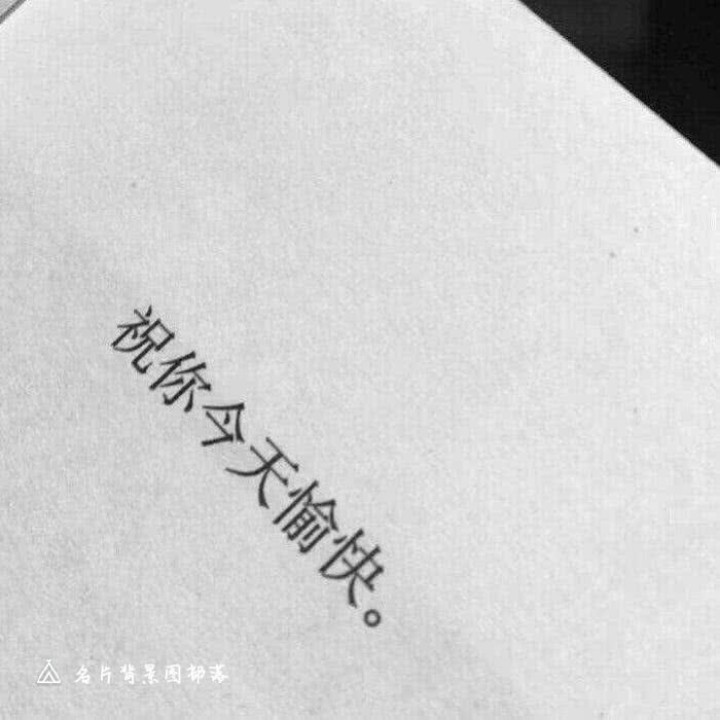 祝你今天愉快。
名片背景图部落